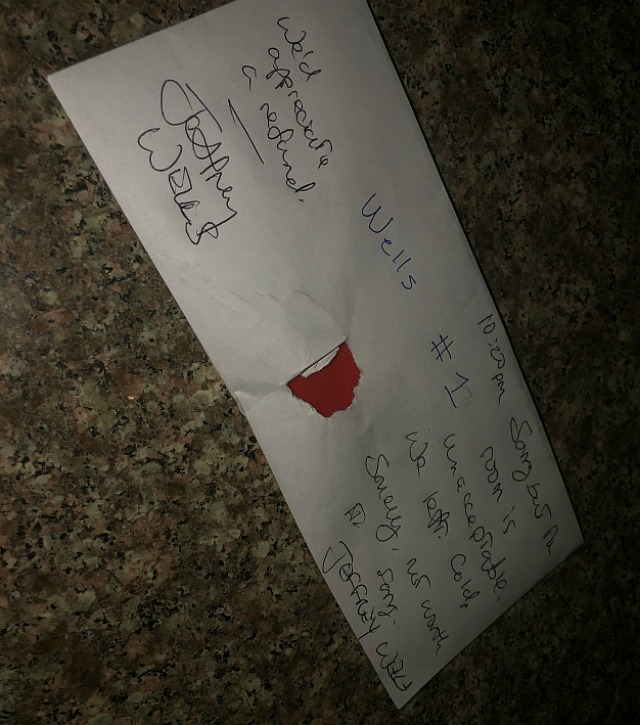 Wells
# 1
10:20 pm Sorry but the
room is
unacceptable.
We left. Cold,
Smelly. Not worth
it. Sorry.
Jeffrey Wells
We'd
appreciate
a refund.
Jeffrey
Wells